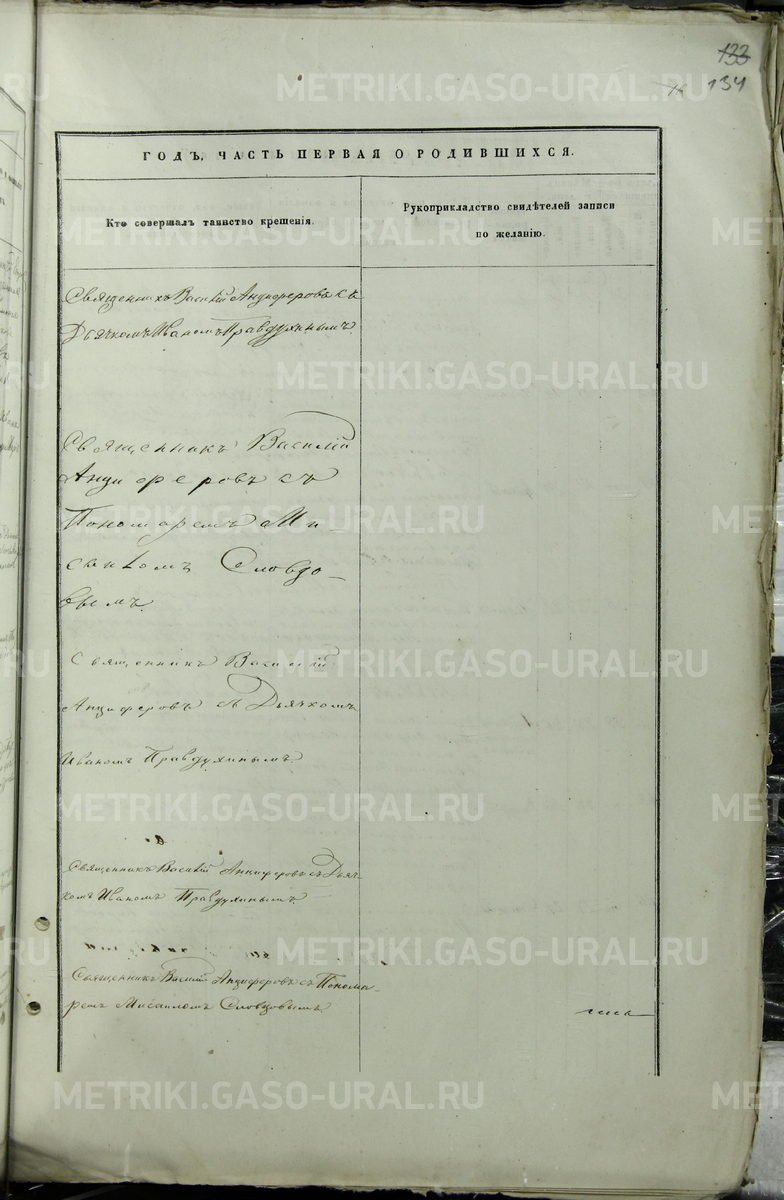 133
134
METRIKI.GASO-URAL.RU
ГОДЪ, ЧАСТЬ ПЕРВАЯ О РОДИВШИХСЯ.
Кто совершалъ таинство крещенія.
Рукоприкладство свидѣтелей записи
по желанію.
Священникъ Василій Анциферовъ съ
Дьячкомъ Иваномъ Правдухинымъ.
Священникъ Василій
Анциферовъ съ
Пономаремъ Ми-
саиломъ Словцо-
вымъ.
Священникъ Василій
Анциферовъ съ Дьячкомъ
Иваномъ Правдухинымъ.
Священникъ Василій Анциферовъ съ Дьяч-
комъ Иваномъ Правдухинымъ.
Священникъ Василій Анциферовъ съ Понома-
ремъ Мисаиломъ Словцовымъ
METRIKI.GASO-URAL.RU